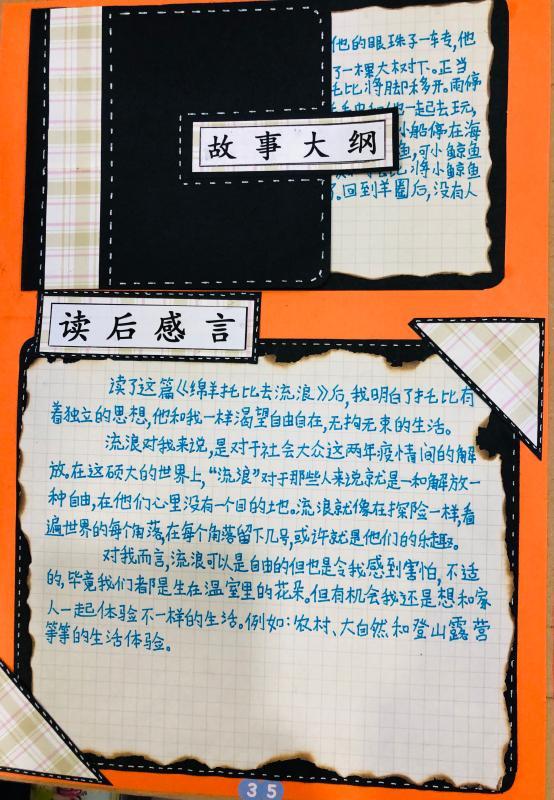 他的眼珠子一转,他
了一棵大树下。正当
托比将脚移开。雨停
一起去玩,
小船停在海
鱼,可小鲸鱼
将小鲸鱼
了。回到羊圈后,没有人
故事大纲
读后感言
读了这篇《绵羊托比去流浪》后,我明白了托比有
着独立的思想,他和我一样渴望自由自在,无拘无束的生活。
流浪对我来说,是对于社会大众这两年疫情间的解
放。在这硕大的世界上,“流浪”对于那些人来说就是一和解放一
种自由,在他们心里没有一个目的土也。流浪就像在探险一样,看
遍世界的每个角落,在每个角落留下几号,或许就是他们的乐趣。
对我而言,流浪可以是自由的但也是令我感到害怕,不适
的,毕竟我们都是生在温室里的花朵。但有机会我还是想和家
人一起体验不一样的生活。例如:农村、大自然和登山露营
等等的生活体验。
35